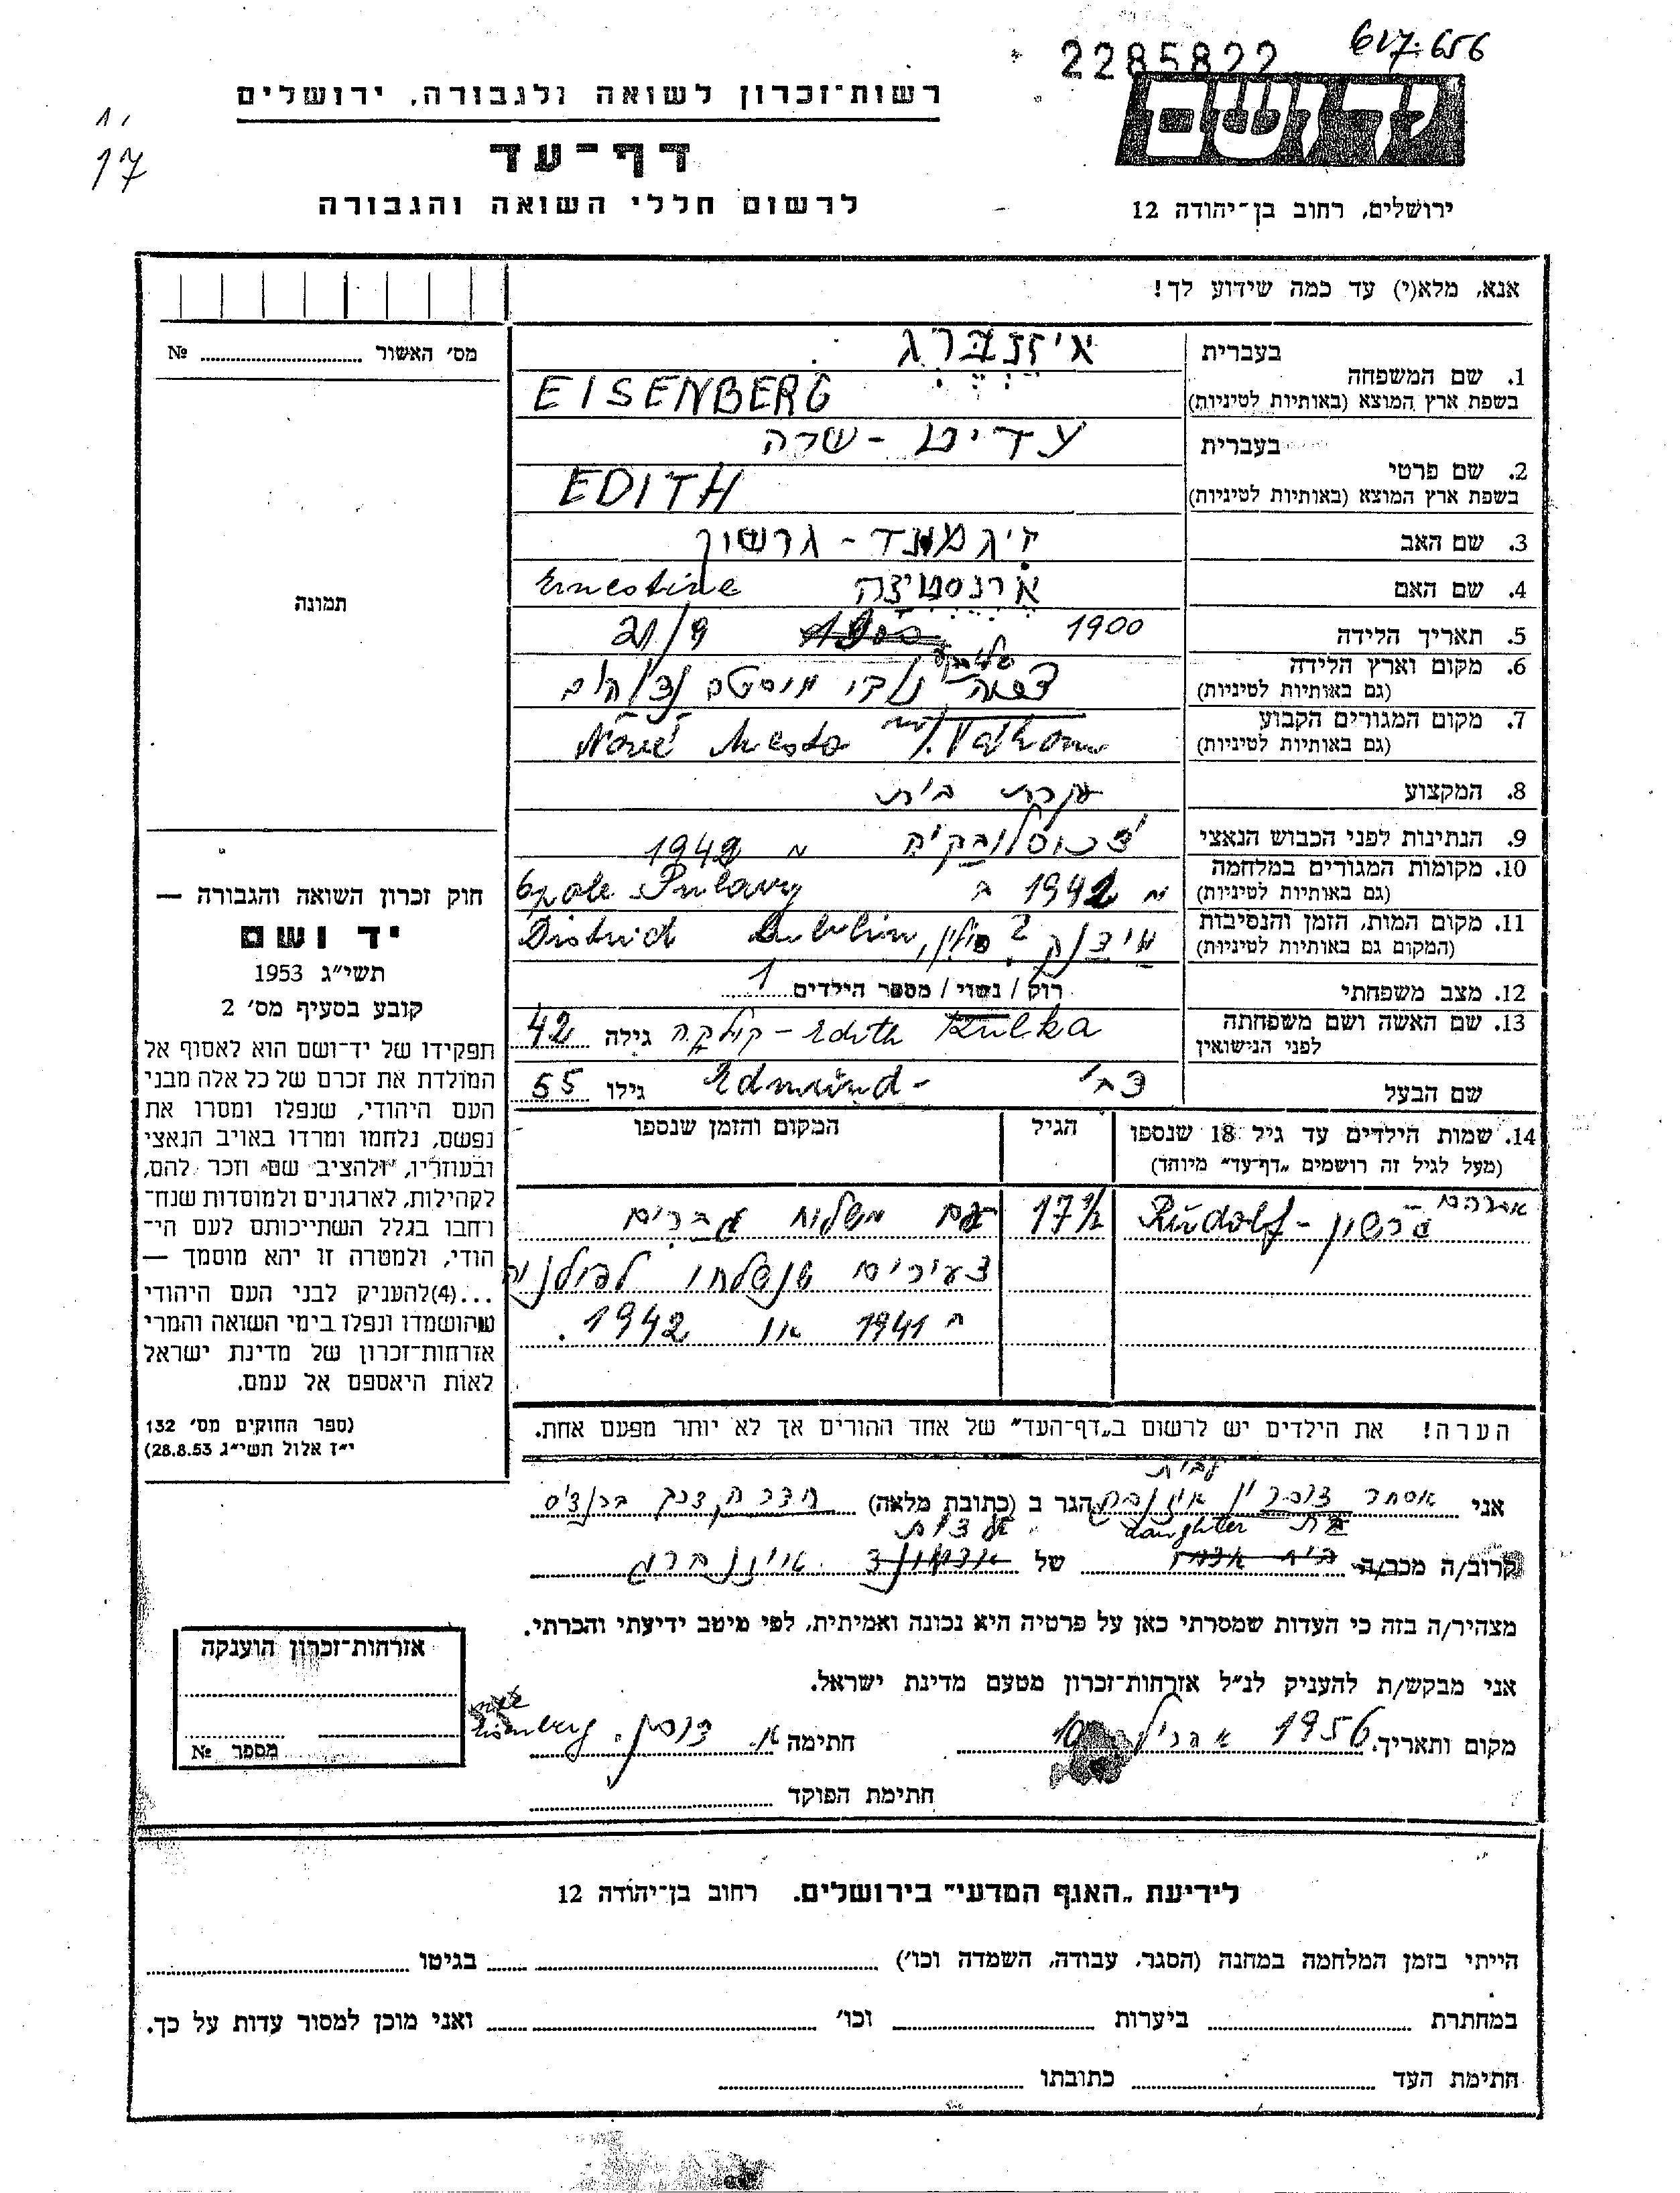 2285822 617.656
רשות־זכרון לשואה ולגבורה, ירושלים
יד ושם
דף־עד
17
לרשום חללי השואה והגבורה
ירושלים, רחוב בן־יהודה 12
אנא, מלא(י) עד כמה שידוע לך!
מס׳ האשור № 
תמונה
בעברית איזנברג
1. שם המשפחה
בשפת ארץ המוצא (באותיות לטיניות) EISENBERG
בעברית עדיט - שרה
2. שם פרטי
בשפת ארץ המוצא (באותיות לטיניות) EDITH
3. שם האב זיגמונד - גרשון
4. שם האם ארנסטינה Ernestine
5. תאריך הלידה 1900 21/9
6. מקום וארץ הלידה
(גם באותיות לטיניות)
7. מקום המגורים הקבוע
(גם באותיות לטיניות) Nové Mesto
8. המקצוע עקרת בית
9. הנתינות לפני הכבוש הנאצי צ׳כוסלובקיה
10. מקומות המגורים במלחמה
(גם באותיות לטיניות) מ 1942 ב Opole Pulawy
11. מקום המות, הזמן והנסיבות
(המקום גם באותיות לטיניות) מידנק ? פולין, District Lublin
12. מצב משפחתי רוק / נשוי / מספר הילדים 1
13. שם האשה ושם משפחתה
לפני הנישואין Edith Kulka - קולקה גילה 42
שם הבעל צבי Edmund - גילו 55
14. שמות הילדים עד גיל 18 שנספו
(מעל לגיל זה רושמים „דף־עד״ מיוחד)
הגיל
המקום והזמן שנספו
אברהם - גרשון - Rudolf 17½ עם משלוח גברים
צעירים שנשלחו לפולניה
ב 1941 או 1942.
הערה! את הילדים יש לרשום ב„דף־העד״ של אחד ההורים אך לא יותר מפעם אחת.
חוק זכרון השואה והגבורה —
יד ושם
תשי״ג 1953
קובע בסעיף מס׳ 2
תפקידו של יד־ושם הוא לאסוף אל
המולדת את זכרם של כל אלה מבני
העם היהודי, שנפלו ומסרו את
נפשם, נלחמו ומרדו באויב הנאצי
ובעוזריו, „ולהציב שם וזכר להם,
לקהילות, לארגונים ולמוסדות שנח־
רחבו בגלל השתייכותם לעם הי־
הודי, ולמטרה זו יהא מוסמך —
...(4)להעניק לבני העם היהודי
שהושמדו ונפלו בימי השואה והמרי
אזרחות־זכרון של מדינת ישראל
לאות היאספם אל עמם.
(ספר החוקים מס׳ 132
י״ז אלול תשי״ג 28.8.53)
לבית
אני אסתר איזנברג הגר ב (כתובת מלאה)
בת daughter עדית
קרוב/ה מכר/ה של איזנברג
מצהיר/ה בזה כי העדות שמסרתי כאן על פרטיה היא נכונה ואמיתית, לפי מיטב ידיעתי והכרתי.
אני מבקש/ת להעניק לנ״ל אזרחות־זכרון מטעם מדינת ישראל.
מקום ותאריך. 10 אפריל 1956 חתימה א. Eisenberg
חתימת הפוקד
אזרחות־זכרון הוענקה
מספר №
לידיעת „האגף המדעי״ בירושלים. רחוב בן־יהודה 12
הייתי בזמן המלחמה במחנה (הסגר, עבודה, השמדה וכו׳) בגיטו
במחתרת ביערות וכו׳ ואני מוכן למסור עדות על כך.
חתימת העד כתובתו